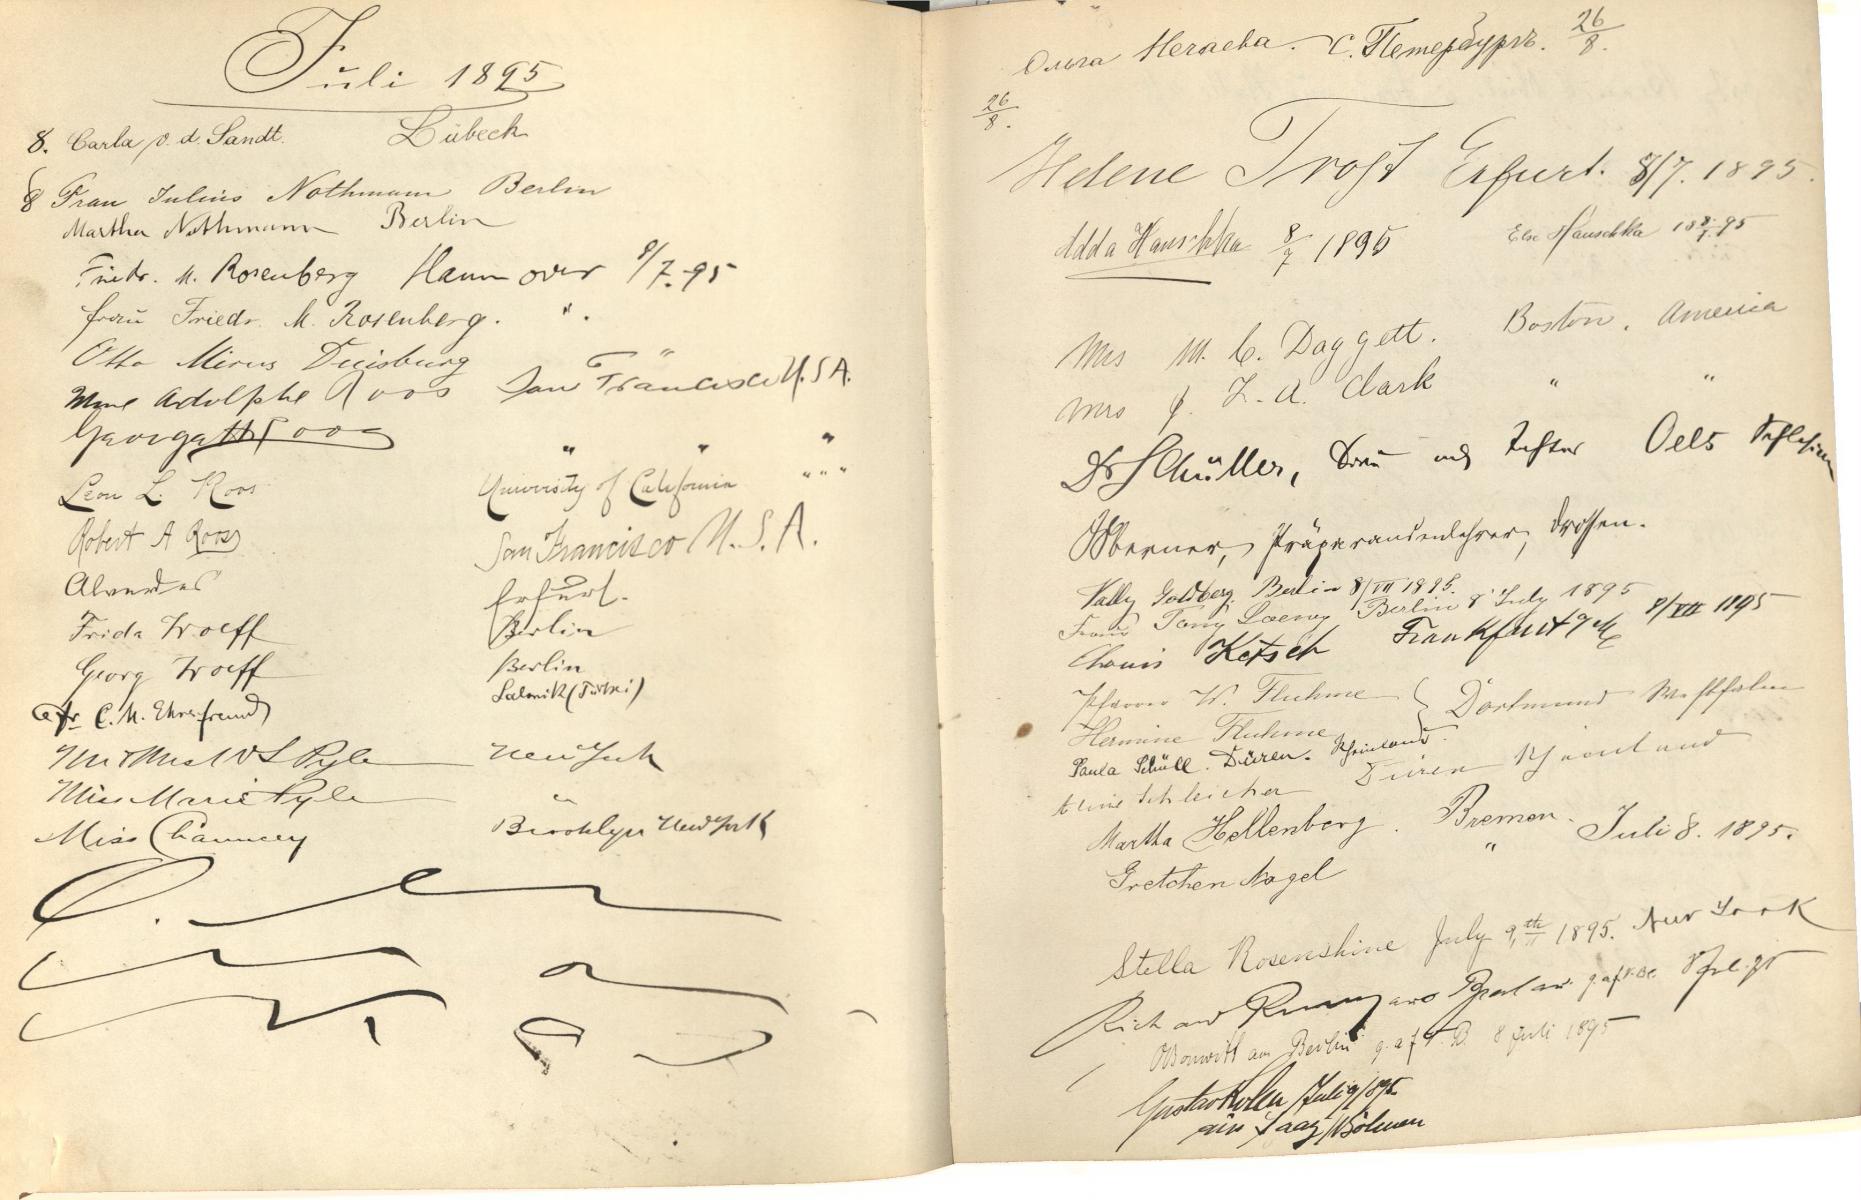 Juli 1895
8. Carla v. d. Sandt. Lübeck
8 Frau Julius Nothmann Berlin
Martha Nothmann Berlin
Friedr. M. Rosenberg Hannover 8/7.95
frau Friedr. M. Rosenberg. " .
Otto Mirus Duisburg "
Mme Adolphe Roos San Francisco U.S.A.
" " "
Leon L. Roos University of California " " "
Robert A Roos San Francisco U.S.A.
Erfurt.
Frida Berlin
Georg Berlin
C. M. Ehrenfreund Salonik (Türkei)
Mr & Mrs W S Pyle New York
Miss Marie Pyle "
Miss Chauncey Brooklyn New York
Ольга Нечаева. С. Петербургъ. 26/8.
26/8.
Helene Trost Erfurt. 8/7. 1895.
Adda Hauschka 8/7 1895
Else Hauschka 18 8/7 95
Mrs M. C. Daggett. Boston, America
Mrs J. L. A. Clark " "
Dr Schüller, Frau und Tochter Oels Schlesien
Präparandenlehrer, Drossen.
Vally Goldberg, Berlin 8/VII 1895.
Frau Tony Loewy Berlin 8 July 1895
Ketsch Frankfurt a/M 8/VII 1895
Pfarrer W. Fluhme } Dortmund Westfalen
Hermine Fluhme
Paula Schüll. Düren. Rheinland.
Schleicher Düren Rheinland
Martha Hellenberg. Bremen. Juli 8. 1895.
Gretchen Nagel "
Stella Rosenshine July 9th 1895. New York
Richard Breslau
aus Berlin 8 Juli 1895
Gustav Juli 9/895
aus Saaz/Böhmen